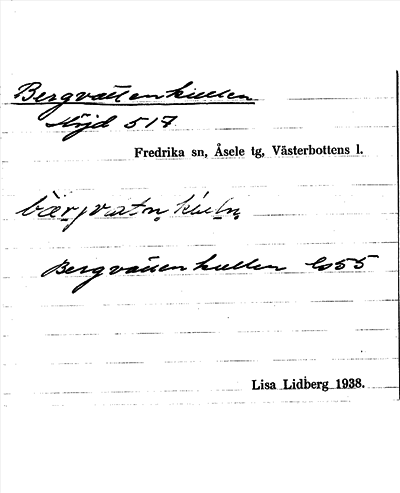 Bergvattenkullen
Höjd 517
Fredrika sn, Åsele tg, Västerbottens l.
bærjvatn̥ kuln̥
Bergvattenkullen Gs55
Lisa Lidberg 1938.